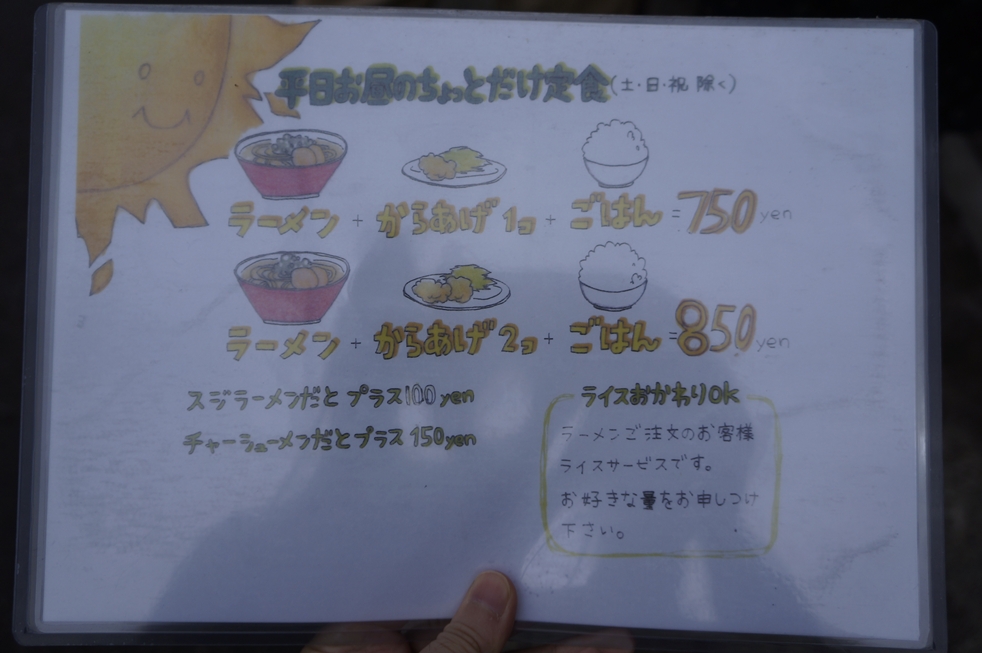 平日お昼のちょっとだけ定食(土・日・祝 除く)
ラーメン + からあげ 1コ + ごはん = 750 yen
ラーメン + からあげ 2コ + ごはん = 850 yen
スジラーメンだと プラス100yen
チャーシューメンだとプラス 150yen
ライスおかわりOK
ラーメンご注文のお客様
ライスサービスです。
お好きな量をお申しつけ
下さい。